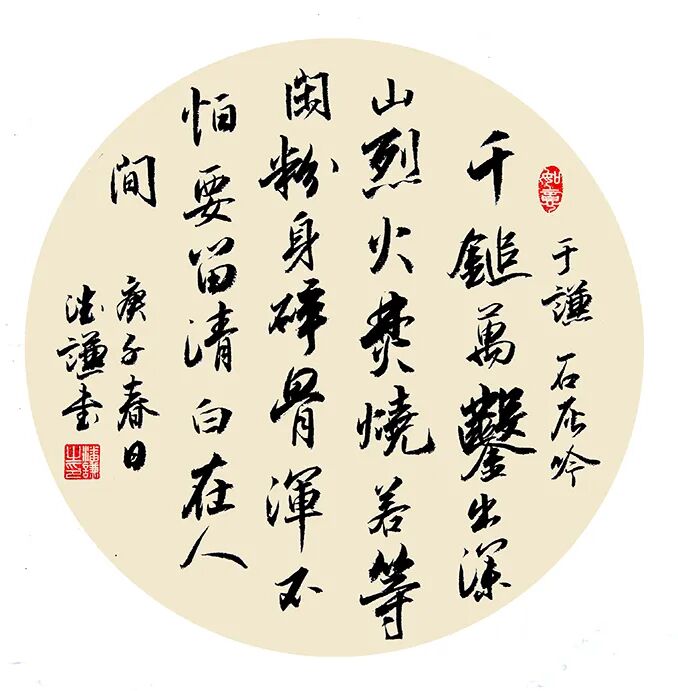 如意
于謙 石灰吟
千鎚萬鑿出深
山烈火焚燒若等
閑粉身碎骨渾不
怕要留清白在人
間
庚子春日
謙書